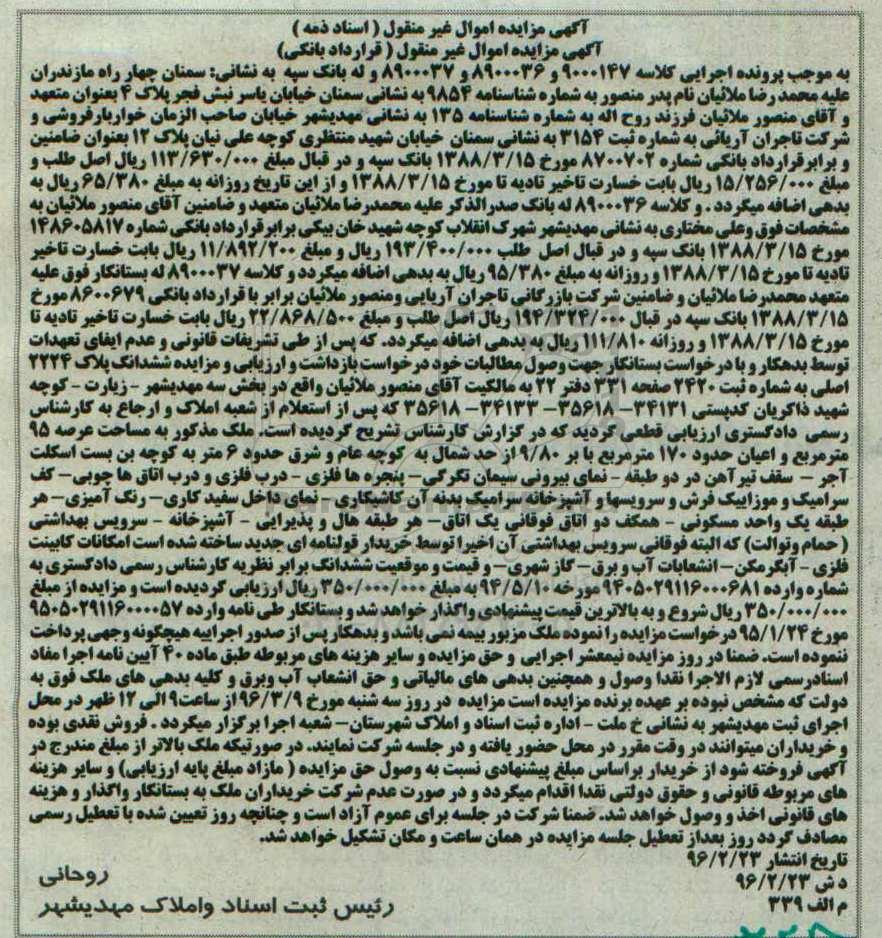 آگهی مزایده اموال غیر منقول ( اسناد ذمه )
آگهی مزایده اموال غیر منقول ( قرارداد بانکی)
به موجب پرونده اجرایی کلاسه ۹۰۰۰۱۴۷ و ۸۹۰۰۰۳۶ و ۸۹۰۰۰۳۷ و له بانک سپه به نشانی: سمنان چهار راه مازندران
علیه محمد رضا ملائیان نام پدر منصور به شماره شناسنامه ۹۸۵۴ به نشانی سمنان خیابان یاسر نبش فجر پلاک ۴ بعنوان متعهد
و آقای منصور ملائیان فرزند روح اله به شماره شناسنامه ۱۳۵ به نشانی مهدیشهر خیابان صاحب الزمان خواربارفروشی و
شرکت تاجران آریائی به شماره ثبت ۳۱۵۴ به نشانی سمنان خیابان شهید منتظری کوچه علی نیان پلاک ۱۲ بعنوان ضامنین
و برابرقرارداد بانکی شماره ۸۷۰۰۷۰۲ مورخ ۱۳۸۸/۳/۱۵ بانک سپه و در قبال مبلغ ۱۱۳/۶۳۰/۰۰۰ ریال اصل طلب و
مبلغ ۱۵/۲۵۶/۰۰۰ ریال بابت خسارت تاخیر تادیه تا مورخ ۱۳۸۸/۳/۱۵ و از این تاریخ روزانه به مبلغ ۶۵/۳۸۰ ریال به
بدهی اضافه میگردد . و کلاسه ۸۹۰۰۰۳۶ له بانک صدرالذکر علیه محمدرضا ملائیان متعهد و ضامنین آقای منصور ملائیان به
مشخصات فوق وعلی مختاری به نشانی مهدیشهر شهرک انقلاب کوچه شهید خان بیکی برابرقرارداد بانکی شماره ۱۴۸۶۰۵۸۱۷
مورخ ۱۳۸۸/۳/۱۵ بانک سپه و در قبال اصل طلب ۱۹۳/۴۰۰/۰۰۰ ریال و مبلغ ۱۱/۸۹۲/۲۰۰ ریال بابت خسارت تاخیر
تادیه تا مورخ ۱۳۸۸/۳/۱۵ و روزانه به مبلغ ۹۵/۳۸۰ ریال به بدهی اضافه میگردد و کلاسه ۸۹۰۰۰۳۷ له بستانکار فوق علیه
متعهد محمدرضا ملائیان و ضامنین شرکت بازرگانی تاجران آریایی ومنصور ملائیان برابر با قرارداد بانکی ۸۶۰۰۶۷۹ مورخ
۱۳۸۸/۳/۱۵ بانک سپه در قبال ۱۹۴/۳۲۴/۰۰۰ ریال اصل طلب و مبلغ ۲۲/۸۶۸/۵۰۰ ریال بابت خسارت تاخیر تادیه تا
مورخ ۱۳۸۸/۳/۱۵ و روزانه ۱۱۱/۸۱۰ ریال به بدهی اضافه میگردد. که پس از طی تشریفات قانونی و عدم ایفای تعهدات
توسط بدهکار و با درخواست بستانکار جهت وصول مطالبات خود درخواست بازداشت و ارزیابی و مزایده ششدانگ پلاک ۲۲۲۴
اصلی به شماره ثبت ۲۴۲۰ صفحه ۳۳۱ دفتر ۲۲ به مالکیت آقای منصور ملائیان واقع در بخش سه مهدیشهر - زیارت - کوچه
شهید ذاکریان کدپستی ۳۴۱۳۱- ۳۵۶۱۸- ۳۴۱۳۳- ۳۵۶۱۸ که پس از استعلام از شعبه املاک و ارجاع به کارشناس
رسمی دادگستری ارزیابی قطعی گردید که در گزارش کارشناس تشریح گردیده است. ملک مذکور به مساحت عرصه ۹۵
مترمربع و اعیان حدود ۱۷۰ مترمربع با بر ۹/۸۰ از حد شمال به کوچه عام و شرق حدود ۶ متر به کوچه بن بست اسکلت
آجر – سقف تیرآهن در دو طبقه - نمای بیرونی سیمان تگرگی- پنجره ها فلزی - درب فلزی و درب اتاق ها چوبی- کف
سرامیک و موزاییک فرش و سرویسها و آشپزخانه سرامیک بدنه آن کاشیکاری - نمای داخل سفید کاری- رنگ آمیزی- هر
طبقه یک واحد مسکونی - همکف دو اتاق فوقانی یک اتاق- هر طبقه هال و پذیرایی - آشپزخانه - سرویس بهداشتی
( حمام وتوالت) که البته فوقانی سرویس بهداشتی آن اخیرا توسط خریدار قولنامه ای جدید ساخته شده است امکانات کابینت
فلزی - آبگرمکن- انشعابات آب و برق- گاز شهری- و قیمت و موقعیت ششدانگ برابر نظریه کارشناس رسمی دادگستری به
شماره وارده ۹۴۰۵۰۲۹۱۱۶۰۰۰۶۸۱ مورخه ۹۴/۵/۱۰ به مبلغ ۳۵۰/۰۰۰/۰۰۰ ریال ارزیابی گردیده است و مزایده از مبلغ
۳۵۰/۰۰۰/۰۰۰ ریال شروع و به بالاترین قیمت پیشنهادی واگذار خواهد شد و بستانکار طی نامه وارده ۹۵۰۵۰۲۹۱۱۶۰۰۰۰۵۷
مورخ ۹۵/۱/۲۴ درخواست مزایده را نموده ملک مزبور بیمه نمی باشد و بدهکار پس از صدور اجراییه هیچگونه وجهی پرداخت
ننموده است. ضمنا در روز مزایده نیمعشر اجرایی و حق مزایده و سایر هزینه های مربوطه طبق ماده ۴۰ آیین نامه اجرا مفاد
اسنادرسمی لازم الاجرا نقدا وصول و همچنین بدهی های مالیاتی و حق انشعاب آب وبرق و کلیه بدهی های ملک فوق به
دولت که مشخص نبوده بر عهده برنده مزایده است مزایده در روز سه شنبه مورخ ۹۶/۳/۹ از ساعت۹ الی ۱۲ ظهر در محل
اجرای ثبت مهدیشهر به نشانی خ ملت - اداره ثبت اسناد و املاک شهرستان- شعبه اجرا برگزار میگردد . فروش نقدی بوده
و خریداران میتوانند در وقت مقرر در محل حضور یافته و در جلسه شرکت نمایند. در صورتیکه ملک بالاتر از مبلغ مندرج در
آگهی فروخته شود از خریدار براساس مبلغ پیشنهادی نسبت به وصول حق مزایده ( مازاد مبلغ پایه ارزیابی) و سایر هزینه
های مربوطه قانونی و حقوق دولتی نقدا اقدام میگردد و در صورت عدم شرکت خریداران ملک به بستانکار واگذار و هزینه
های قانونی اخذ و وصول خواهد شد. ضمنا شرکت در جلسه برای عموم آزاد است و چنانچه روز تعیین شده با تعطیل رسمی
مصادف گردد روز بعداز تعطیل جلسه مزایده در همان ساعت و مکان تشکیل خواهد شد.
تاریخ انتشار ۹۶/۲/۲۳
د ش ۹۶/۲/۲۳
م الف ۳۳۹
روحانی
رئیس ثبت اسناد واملاک مهدیشهر